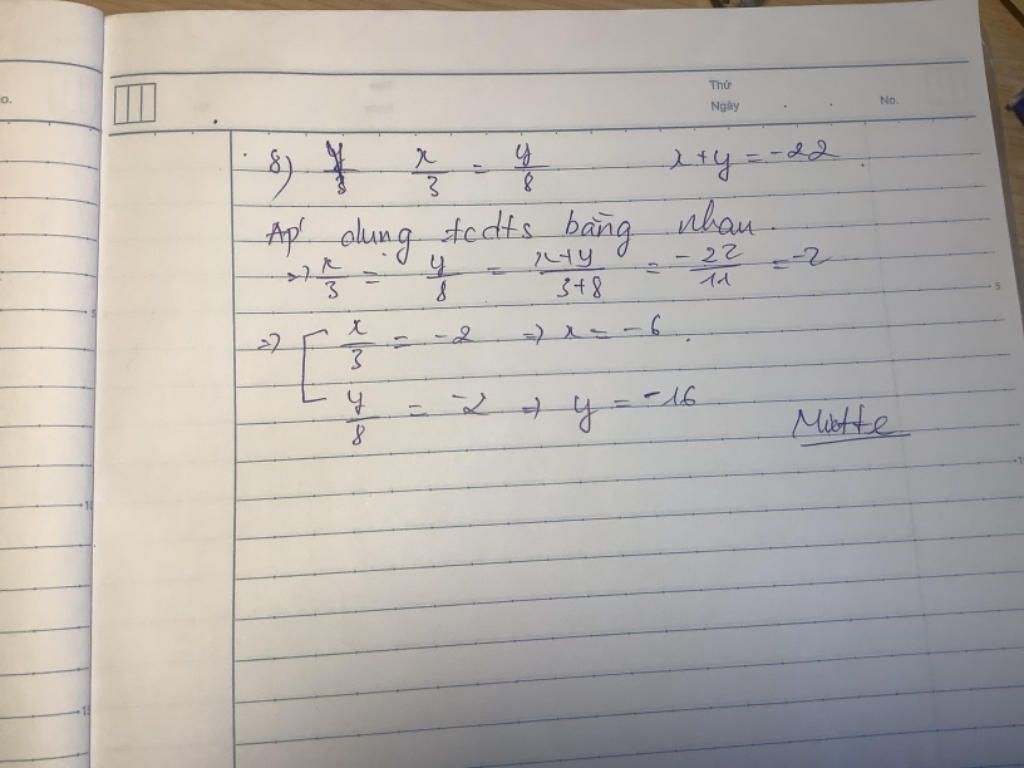 o.
Thứ
Ngày . .
No.
8) x/3 = y/8 x + y = -22
Áp dụng tcdts bằng nhau.
=> x/3 = y/8 = x+y/3+8 = -22/11 = -2
=> [ x/3 = -2 => x = -6.
y/8 = -2 => y = -16
5
10